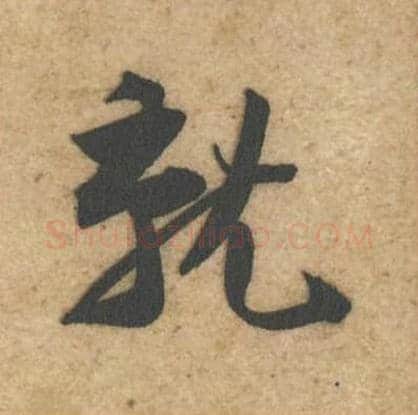 就
ShufaZidao.COM